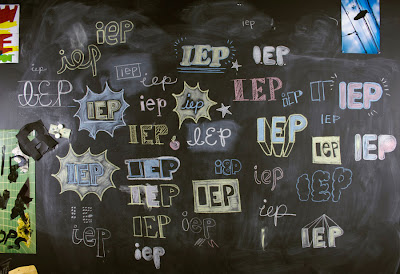 iep
iep
IEP
I.E.P.
iep
IEP
iep
IEP
IEP
iep
iep
IEP
IEP
IEP
IEP
IEP
IEP
IEP
IEP
IEP
IEP
IEP
IEP
iep
iep
IEP
IEP
IEP
iep
iep
iep
IEP
iep
IEP
iep